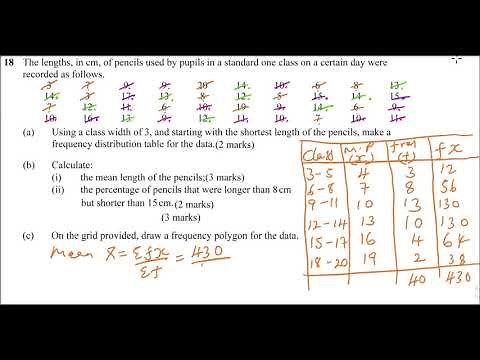 18 The lengths, in cm, of pencils used by pupils in a standard one class on a certain day were
recorded as follows.
7 9 9 20 14 10 6 8 13
14 3 17 13 8 12 8 15 14 15
7 12 11 6 10 9 14 6 9
10 16 13 9 12 11 10 7 11
(a) Using a class width of 3, and starting with the shortest length of the pencils, make a
frequency distribution table for the data.(2 marks)
(b) Calculate:
(i) the mean length of the pencils;(3 marks)
(ii) the percentage of pencils that were longer than 8cm
but shorter than 15cm.(2 marks)
(3 marks)
(c) On the grid provided, draw a frequency polygon for the data.
Mean x̄ = Σfx = 430
Σf
Class M.P (x) (f) fx
3-5 4 3 12
6-8 7 8 56
9-11 10 13 130
12-14 13 10 130
15-17 16 4 64
18-20 19 2 38
40 430